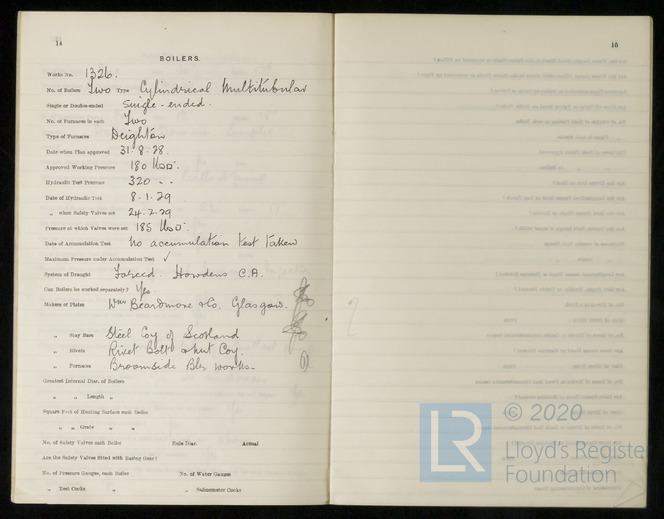 14
BOILERS.
Works No. 1326.
No. of Boilers Two Type Cylindrical Multitubular
Single or Double-ended Single-ended.
No. of Furnaces in each Two
Type of Furnaces Deighton
Date when Plan approved 31.8.28.
Approved Working Pressure 180 lbs
Hydraulic Test Pressure 320 " "
Date of Hydraulic Test 8.1.29
„ when Safety Valves set 24.2.29
Pressure at which Valves were set 185 lbs
Date of Accumulation Test No accumulation test taken
Maximum Pressure under Accumulation Test ✓
System of Draught Forced. Howdens C.A.
Can Boilers be worked separately? Yes
Makers of Plates Wm Beardmore & Co. Glasgow.
„ Stay Bars Steel Coy of Scotland
„ Rivets Rivet Bolt & Nut Coy.
„ Furnaces Broomside Blr Works.
Greatest Internal Diar. of Boilers
„ „ Length „
Square Feet of Heating Surface each Boiler
„ „ Grate „ „
No. of Safety Valves each Boiler Rule Diar. Actual
Are the Safety Valves fitted with Easing Gear?
No. of Pressure Gauges, each Boiler No. of Water Gauges
„ Test Cocks „ „ Salinometer Cocks
15
LR © 2020
Lloyd's Register
Foundation